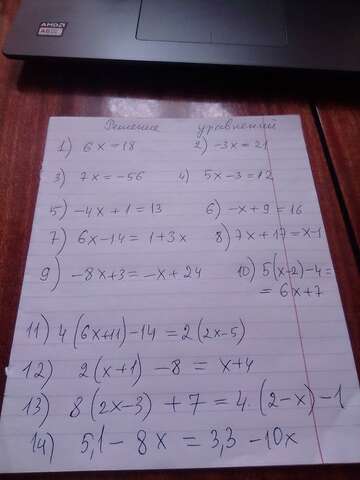 AMD
A6
Решение уравнений
1) 6x = 18 2) -3x = 21
3) 7x = -56 4) 5x - 3 = 12
5) -4x + 1 = 13 6) -x + 9 = 16
7) 6x - 14 = 1 + 3x 8) 7x + 17 = x - 1
9) -8x + 3 = -x + 24 10) 5(x - 2) - 4 =
= 6x + 7
11) 4(6x + 11) - 14 = 2(2x - 5)
12) 2(x + 1) - 8 = x + 4
13) 8(2x - 3) + 7 = 4·(2 - x) - 1
14) 5,1 - 8x = 3,3 - 10x